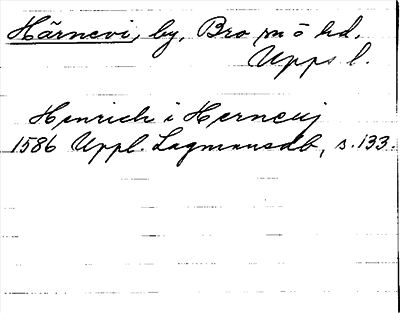 Härnevi, by, Bro sn o hd,
Upps l.
Henrich i Hernevj
1586 Uppl. Lagmansdb, s. 133.